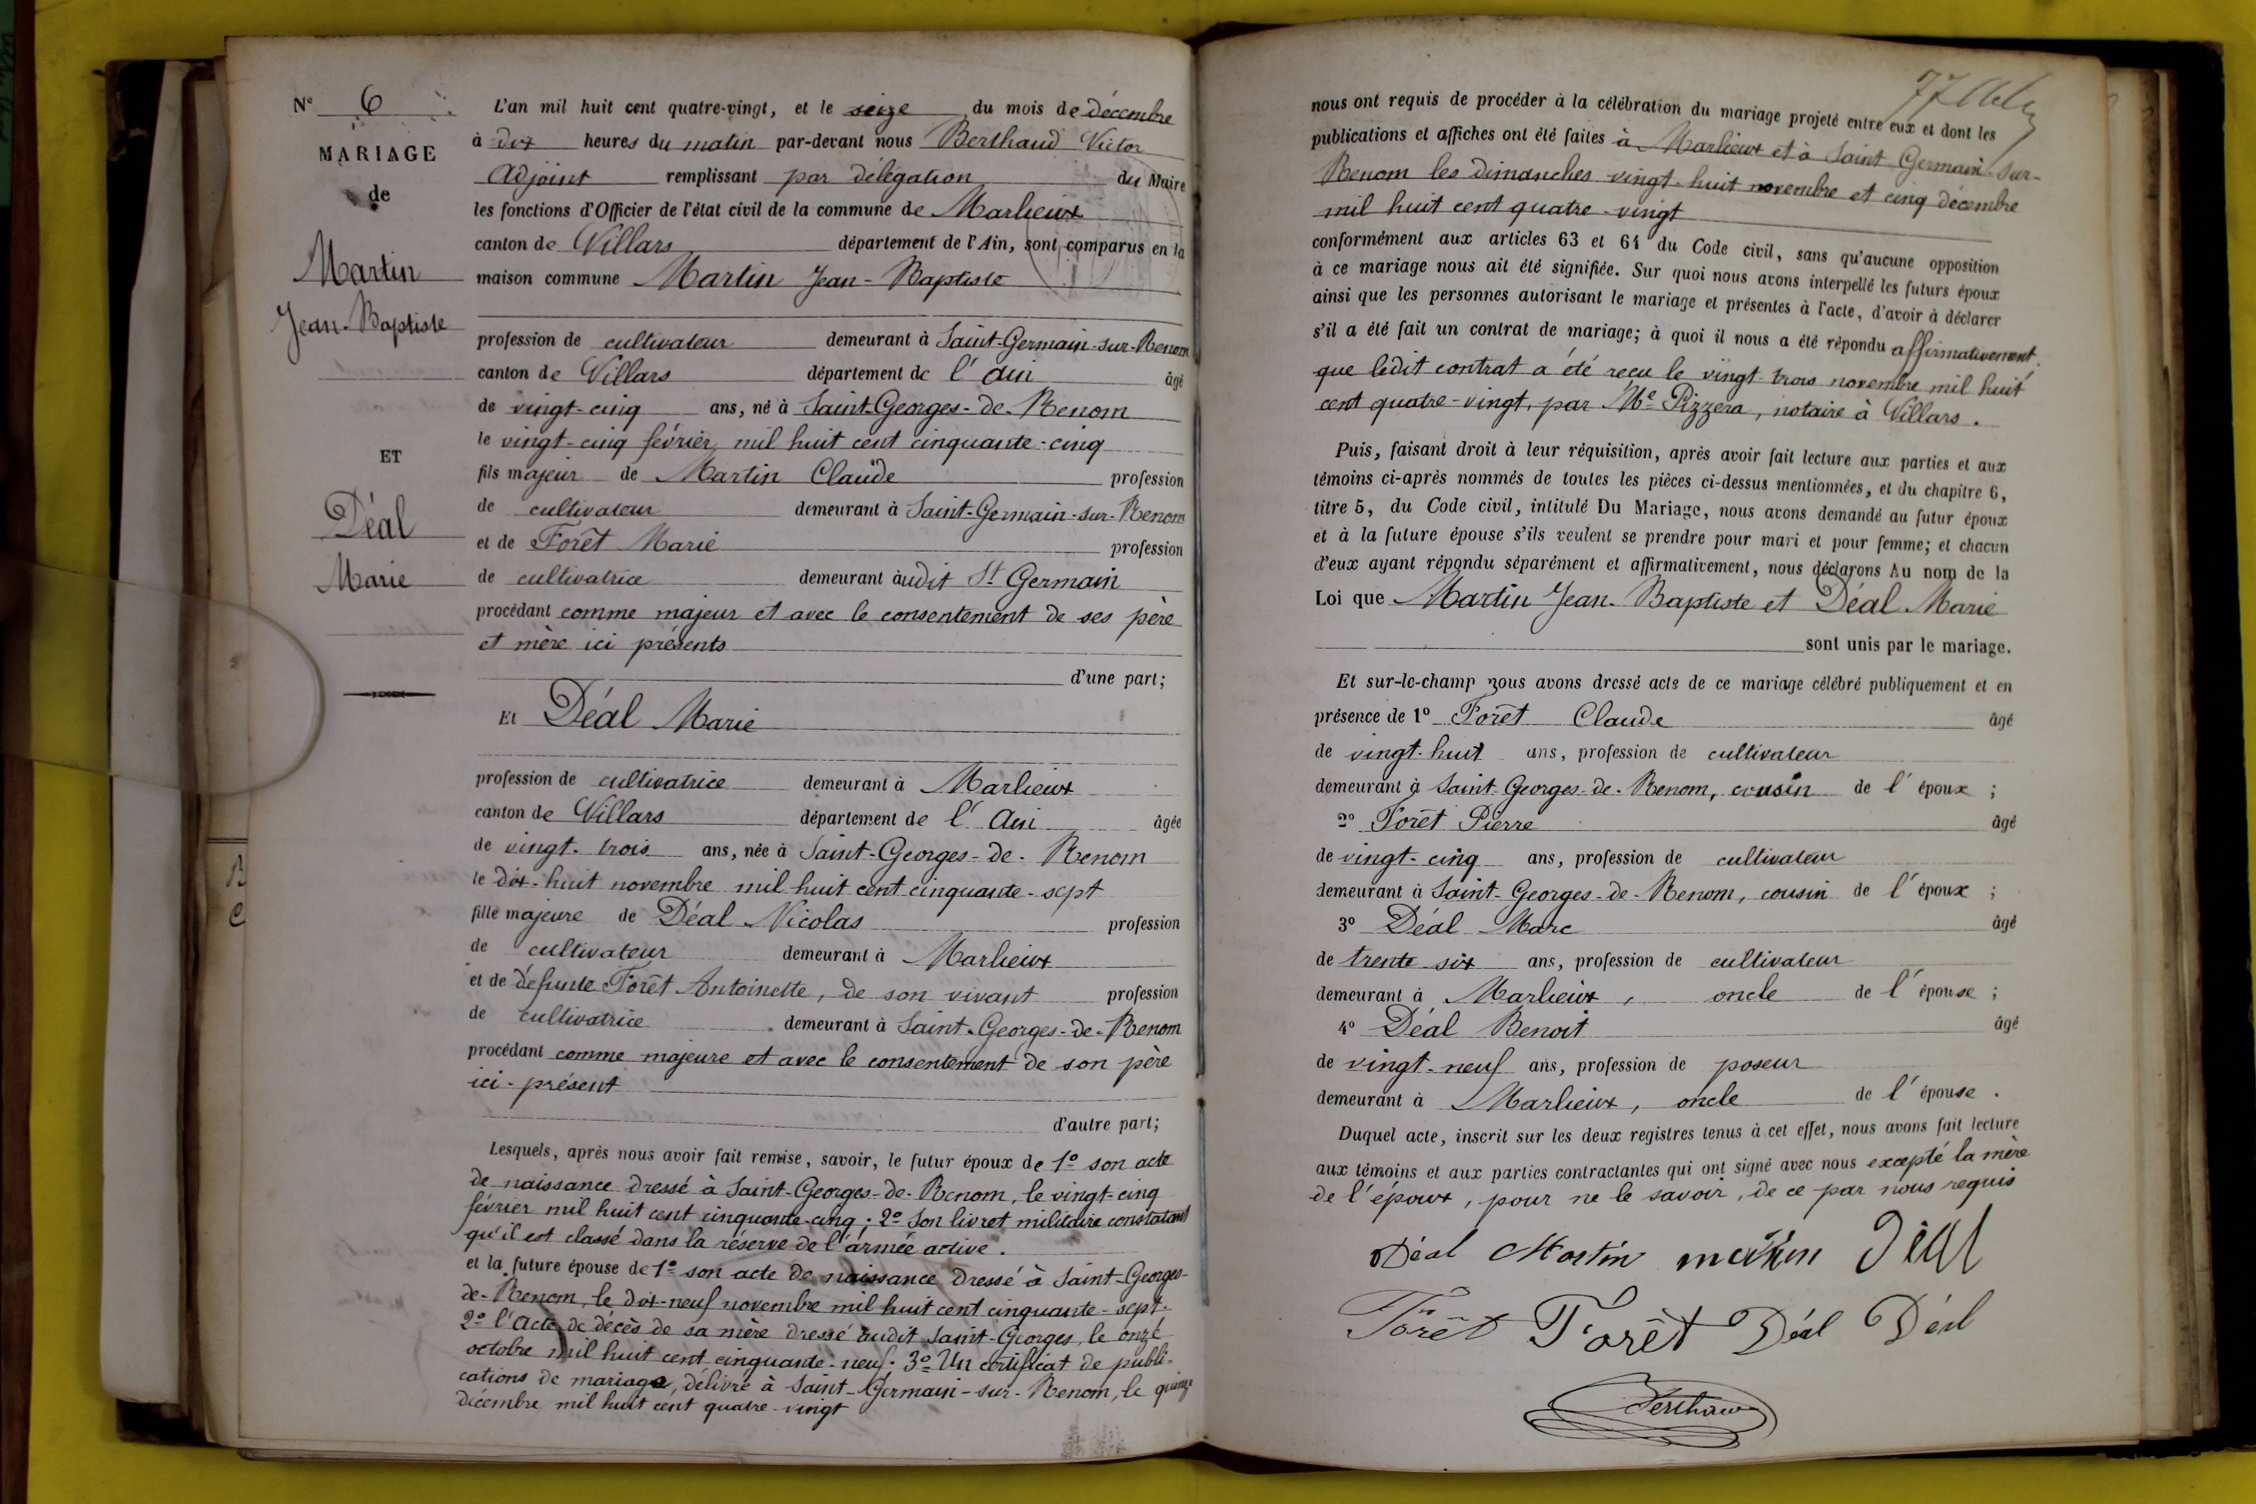 N° 6
MARIAGE
de
Martin
Jean-Baptiste
ET
Déal
Marie
L'an mil huit cent quatre-vingt, et le seize du mois de décembre
à dix heures du matin par-devant nous Berthaud Victor
Adjoint remplissant par délégation du Maire
les fonctions d'Officier de l'état civil de la commune de Marlieux
canton de Villars département de l'Ain, sont comparus en la
maison commune Martin Jean-Baptiste
profession de cultivateur demeurant à Saint-Germain-sur-Renom
canton de Villars département de l'Ain âgé
de vingt-cinq ans, né à Saint-Georges-de-Renom
le vingt-cinq février mil huit cent cinquante-cinq
fils majeur de Martin Claude profession
de cultivateur demeurant à Saint-Germain-sur-Renom
et de Forêt Marie profession
de cultivatrice demeurant audit St Germain
procédant comme majeur et avec le consentement de ses père
et mère ici présents
d'une part;
Et Déal Marie
profession de cultivatrice demeurant à Marlieux
canton de Villars département de l'Ain âgée
de vingt-trois ans, née à Saint-Georges-de-Renom
le dix-huit novembre mil huit cent cinquante-sept
fille majeure de Déal Nicolas profession
de cultivateur demeurant à Marlieux
et de défunte Forêt Antoinette, de son vivant profession
de cultivatrice demeurant à Saint-Georges-de-Renom
procédant comme majeure et avec le consentement de son père
ici-présent
d'autre part;
Lesquels, après nous avoir fait remise, savoir, le futur époux de 1° son acte
de naissance dressé à Saint-Georges-de-Renom, le vingt-cinq
février mil huit cent cinquante-cinq; 2° Son livret militaire constatant
qu'il est classé dans la réserve de l'armée active.
et la future épouse de 1° son acte de naissance dressé à Saint-Georges-
de-Renom, le dix-neuf novembre mil huit cent cinquante-sept.
2° l'Acte de décès de sa mère dressé audit Saint-Georges, le onze
octobre mil huit cent cinquante-neuf. 3° Un certificat de publi-
cations de mariage, délivré à Saint-Germain-sur-Renom, le quinze
décembre mil huit cent quatre-vingt
77
nous ont requis de procéder à la célébration du mariage projeté entre eux et dont les
publications et affiches ont été faites à Marlieux et à Saint Germain-sur-
Renom les dimanches vingt-huit novembre et cinq décembre
mil huit cent quatre-vingt
conformément aux articles 63 et 64 du Code civil, sans qu'aucune opposition
à ce mariage nous ait été signifiée. Sur quoi nous avons interpellé les futurs époux
ainsi que les personnes autorisant le mariage et présentes à l'acte, d'avoir à déclarer
s'il a été fait un contrat de mariage; à quoi il nous a été répondu affirmativement
que ledit contrat a été reçu le vingt-trois novembre mil huit
cent quatre-vingt, par Me Pizzera, notaire à Villars.
Puis, faisant droit à leur réquisition, après avoir fait lecture aux parties et aux
témoins ci-après nommés de toutes les pièces ci-dessus mentionnées, et du chapitre 6,
titre 5, du Code civil, intitulé Du Mariage, nous avons demandé au futur époux
et à la future épouse s'ils veulent se prendre pour mari et pour femme; et chacun
d'eux ayant répondu séparément et affirmativement, nous déclarons Au nom de la
Loi que Martin Jean-Baptiste et Déal Marie
sont unis par le mariage.
Et sur-le-champ nous avons dressé acte de ce mariage célébré publiquement et en
présence de 1° Forêt Claude âgé
de vingt-huit ans, profession de cultivateur
demeurant à Saint-Georges-de-Renom, cousin de l'époux;
2° Forêt Pierre âgé
de vingt-cinq ans, profession de cultivateur
demeurant à Saint-Georges-de-Renom, cousin de l'époux;
3° Déal Marc âgé
de trente-six ans, profession de cultivateur
demeurant à Marlieux, oncle de l'épouse;
4° Déal Benoit âgé
de vingt-neuf ans, profession de poseur
demeurant à Marlieux, oncle de l'épouse.
Duquel acte, inscrit sur les deux registres tenus à cet effet, nous avons fait lecture
aux témoins et aux parties contractantes qui ont signé avec nous excepté la mère
de l'époux, pour ne le savoir, de ce par nous requis
Déal Martin martin Déal
Forêt Forêt Déal Déal
Berthaud